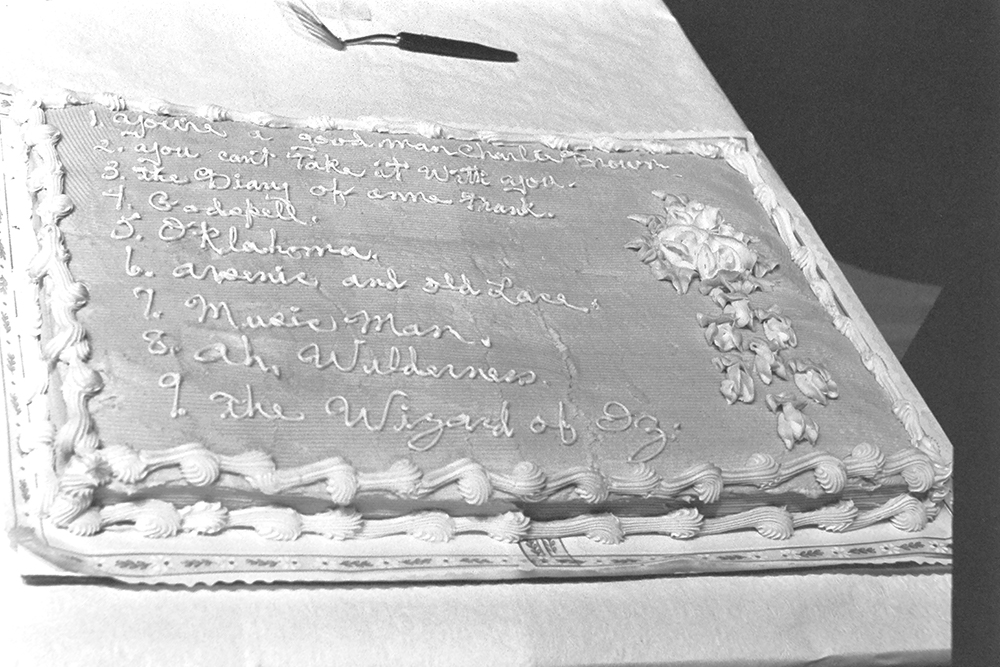 1. You're a good man Charlie Brown
2. You can't Take it With you.
3. The Diary of anne Frank.
4. Godspell.
5. O'Klahoma.
6. arsenic and old Lace.
7. Music Man.
8. Ah, Wilderness.
9. The Wizard of Oz.